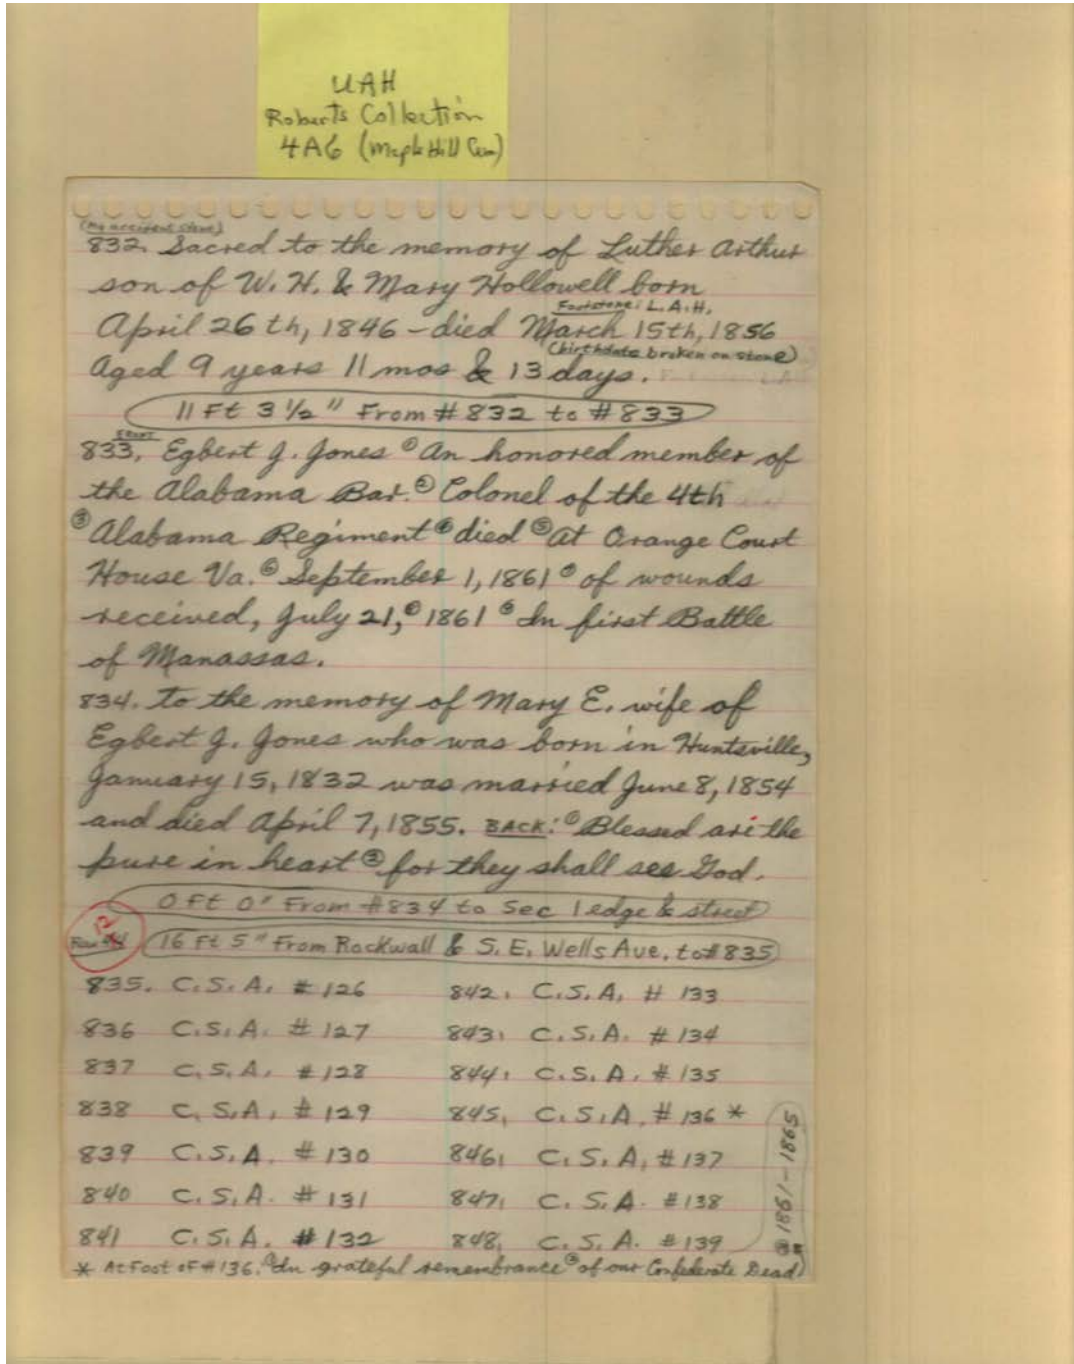 UAH
Roberts Collection
4A6 (Maple Hill Cem)
832. Sacred to the memory of Luther Arthur
son of W. H. & Mary Hollowell born
Footstone: L.A.H.
April 26th, 1846 – died March 15th, 1856
(birthdate broken on stone)
Aged 9 years 11 mos & 13 days.
11 Ft 3 ½" From #832 to #833
FRONT
833. Egbert J. Jones ① An honored member of
the Alabama Bar. ② Colonel of the 4th
③ Alabama Regiment ④ died ⑤ At Orange Court
House Va. ⑥ September 1, 1861 of wounds
received, July 21, 1861 In first Battle
of Manassas.
834. To the memory of Mary E. wife of
Egbert J. Jones who was born in Huntsville,
January 15, 1832 was married June 8, 1854
and died April 7, 1855. BACK: ① Blessed are the
pure in heart ② for they shall see God.
0 Ft 0" From #834 to Sec 1 edge & street
12
Row 16 Ft 5" From Rockwall & S. E. Wells Ave. to #835
835. C.S.A. #126 842. C.S.A. # 133
836 C.S.A. # 127 843. C.S.A. # 134
837 C.S.A. #128 844. C.S.A. # 135
838 C.S.A. # 129 845. C.S.A. # 136 *
839 C.S.A. # 130 846. C.S.A. #137
840 C.S.A. # 131 847. C.S.A. #138
841 C.S.A. #132 848. C.S.A. #139
1861–1865
* At Foot of #136. ① In grateful remembrance ② of our Confederate Dead